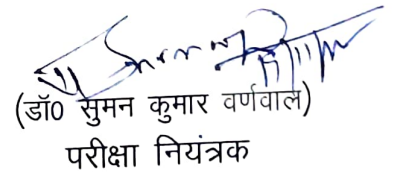 (डॉ0 सुमन कुमार वर्णवाल)
परीक्षा नियंत्रक